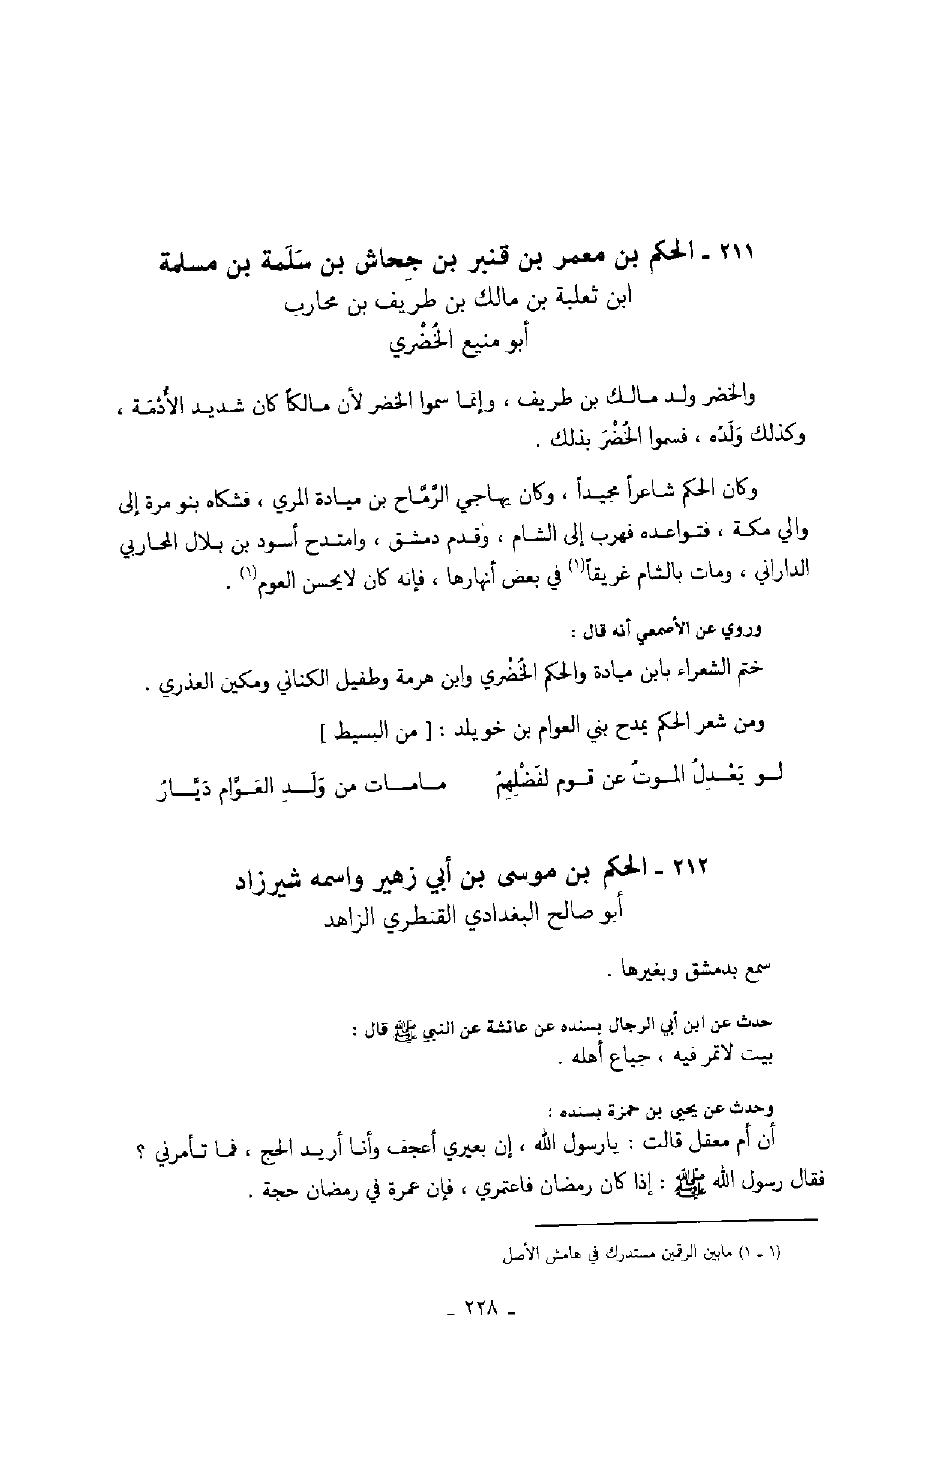 ٢١١ ـ الحكم بن معمر بن قنبر بن جِحاش بن سَلَمة بن مسلمة
ابن ثعلبة بن مالك بن طريف بن محارب
أبو منيع الخُضْري
والخضر ولد مالك بن طريف ، وإنما سموا الخضر لأن مالكاً كان شديد الأُدْمَة ،
وكذلك وَلَدُه ، فسموا الخُضْرَ بذلك .
وكان الحكم شاعراً مجيداً ، وكان يهاجي الرَّمَّاح بن ميادة المري ، فشكاه بنو مرة إلى
والي مكة ، فتواعده فهرب إلى الشام ، وقدم دمشق ، وامتدح أسود بن بلال المحاربي
الداراني ، ومات بالشام غريقاً(١) في بعض أنهارها ، فإنه كان لايحسن العوم(١) .
وروي عن الأصمعي أنه قال :
ختم الشعراء بابن ميادة والحكم الخُضْري وابن هرمة وطفيل الكناني ومكين العذري .
ومن شعر الحكم يمدح بني العوام بن خويلد : [ من البسيط ]
لو يَعْدِلُ الموتُ عن قوم لفَضْلِهِمُ مامات من وَلَدِ العَوَّام دَيَّارُ
٢١٢ ـ الحكم بن موسى بن أبي زهير واسمه شيرزاد
أبو صالح البغدادي القنطري الزاهد
سمع بدمشق وبغيرها .
حدث عن ابن أبي الرجال بسنده عن عائشة عن النبي ﷺ قال :
بيت لاتمر فيه ، جياع أهله .
وحدث عن يحيى بن حمزة بسنده :
أن أم معقل قالت : يارسول الله ، إن بعيري أعجف وأنا أريد الحج ، فما تأمرني ؟
فقال رسول الله ﷺ : إذا كان رمضان فاعتمري ، فإن عمرة في رمضان حجة .
(١ ـ ١) مابين الرقمين مستدرك في هامش الأصل
ـ ٢٢٨ ـ